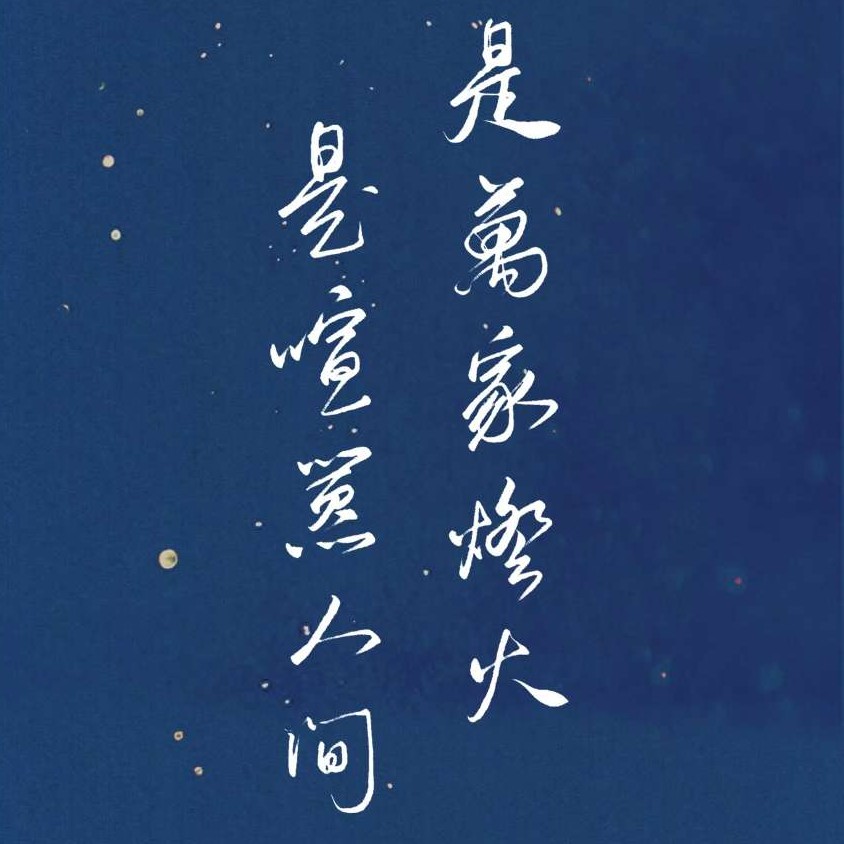 是萬家燈火
是喧囂人间